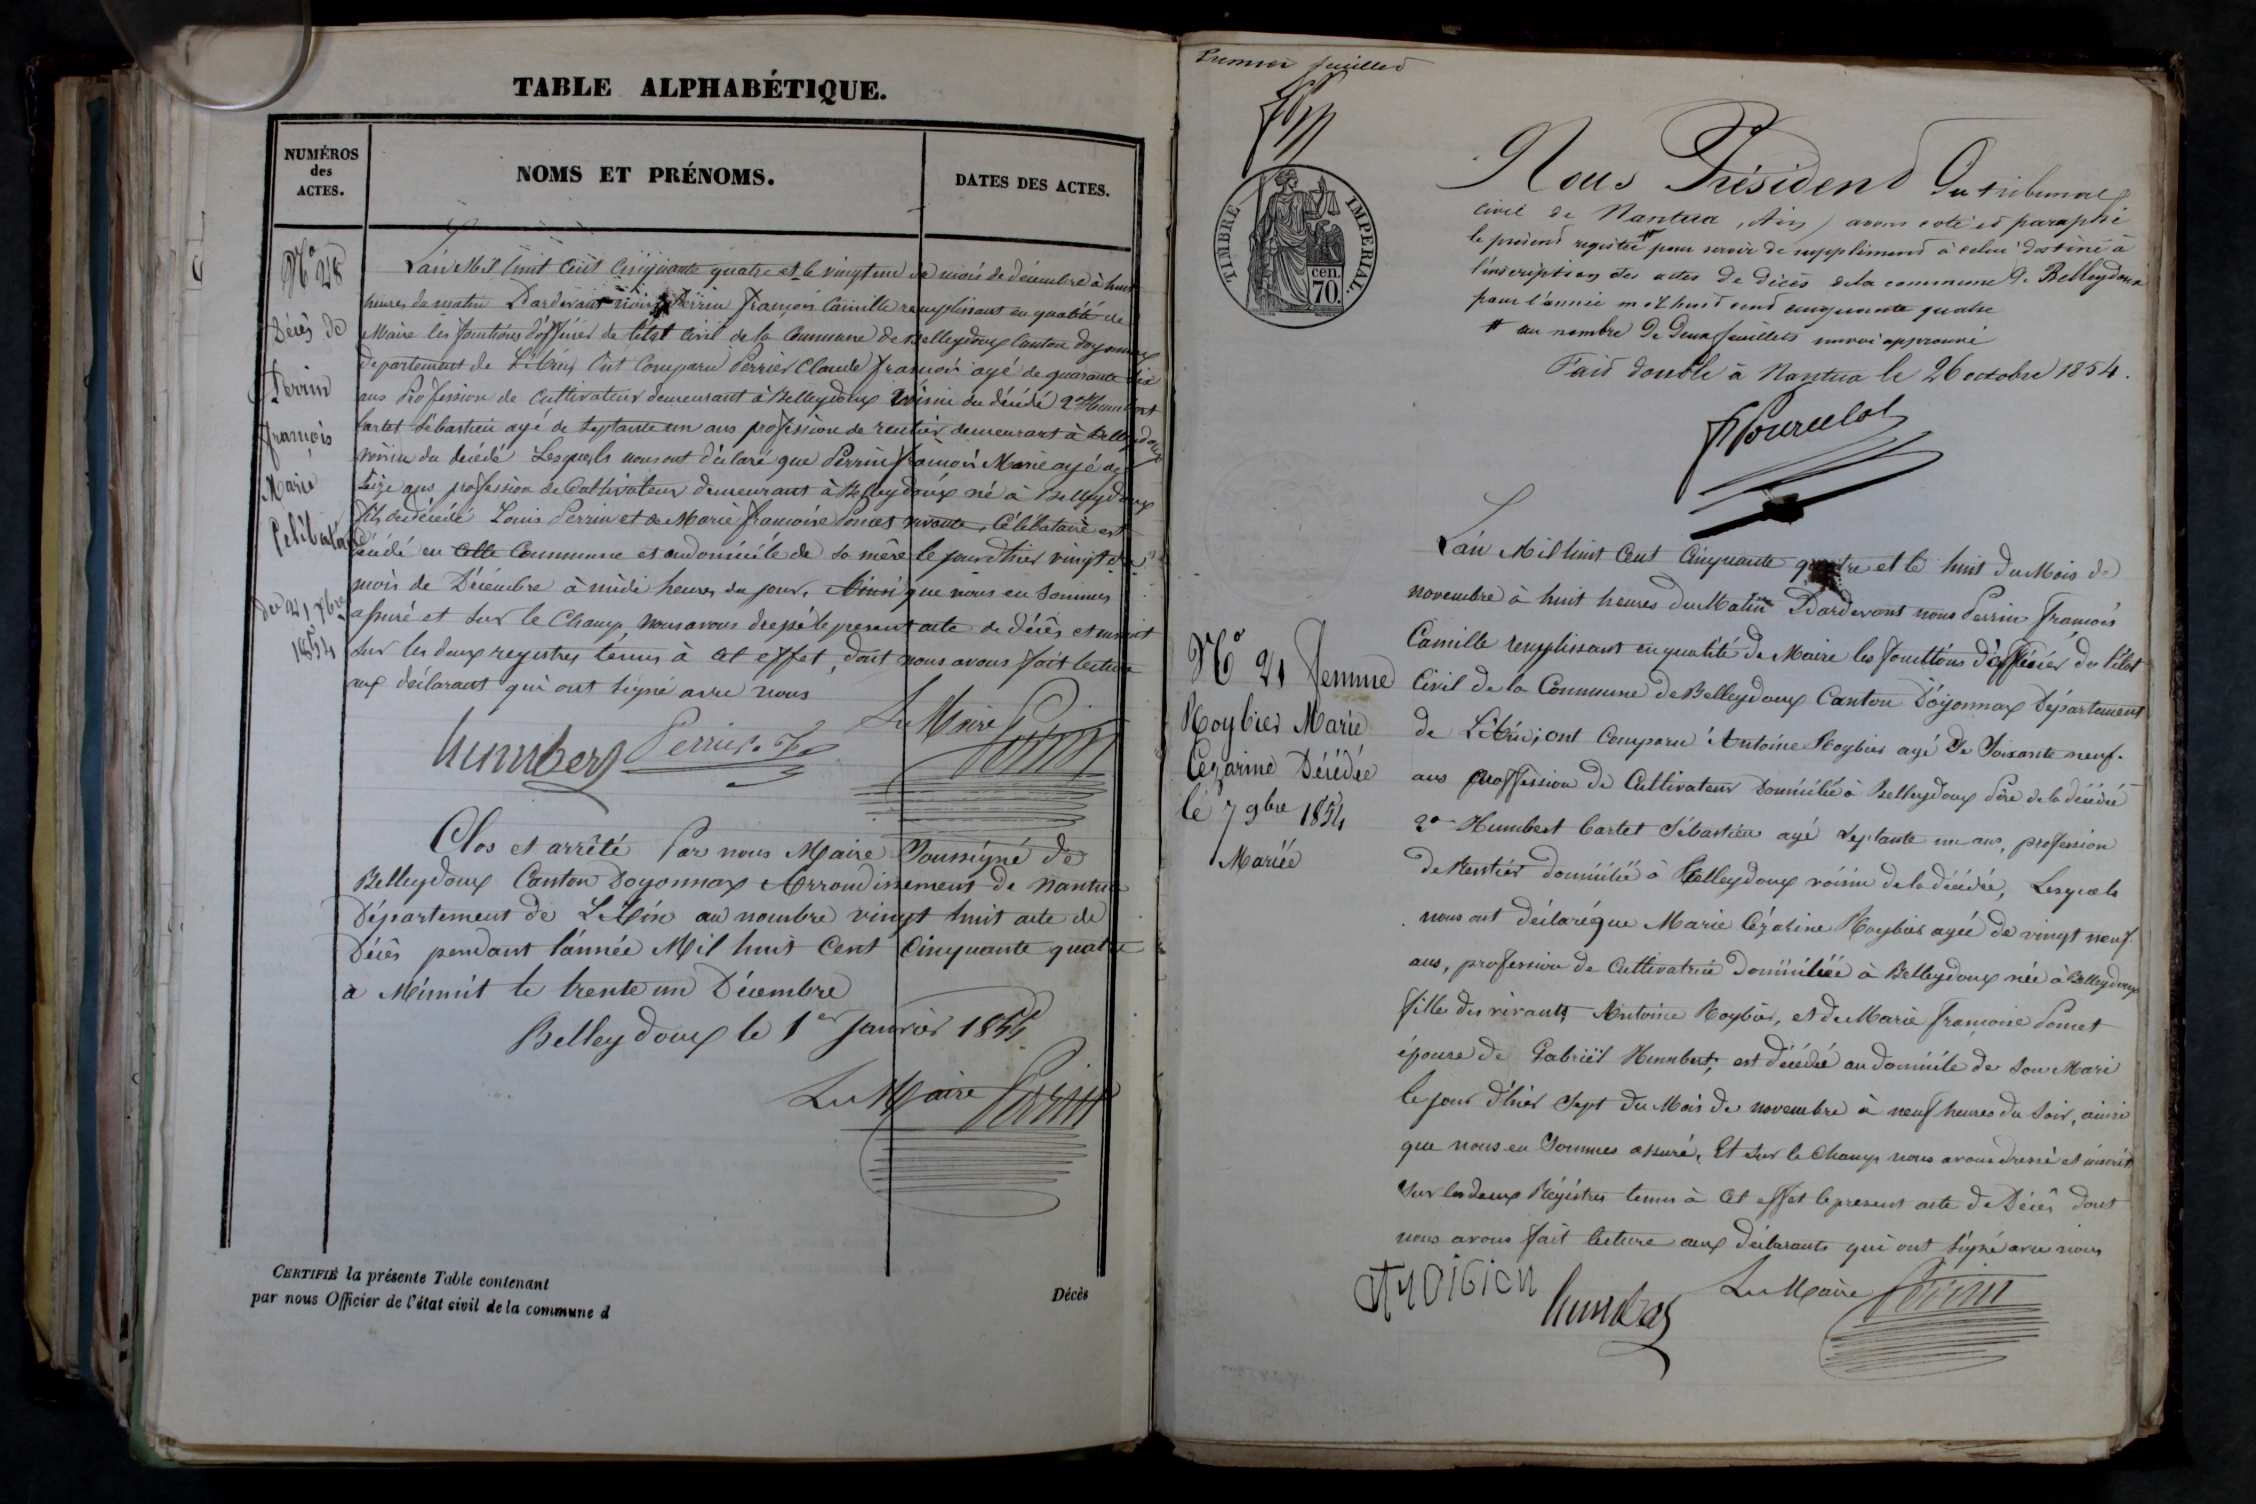 TABLE ALPHABÉTIQUE.
NUMÉROS
des
ACTES.
NOMS ET PRÉNOMS.
DATES DES ACTES.
No 28
Décès de
Perrin
françois
Marie
Celibataire
du 21 Xbre
1854
L'an Mil huit Cent Cinquante quatre et le vingt un de mois de décembre à huit
heures du matin Pardevant nous Perrin françois Camille remplissant en qualité de
Maire les fonctions d'officier de l'état civil de la Commune de Belleydoux Canton doyonnax
département de L'Ain, Ont Comparu Perrier Claude françois agé de quarante six
ans Profession de Cultivateur demeurant à Belleydoux voisin du décédé 2o Humbert
Cartet Sébastien agé de septante un ans profession de rentier demeurant à Belleydoux
voisin du décédé Lesquels nous ont déclaré que Perrin françois Marie agé de
Seize ans profession de Cultivateur demeurant à Belleydoux né à Belleydoux
fils de décédé Louis Perrin et de Marie françoise Poncet vivante, Célibataire est
décédé en cette Commune et au domicile de sa mère le jour d'hier vingt du
mois de Décembre à midi heures du jour. Ainsi que nous en sommes
assuré et sur le Champ nous avons dressé le present acte de décès et inscrit
sur les deux registres tenus à cet effet, dont nous avons fait lecture
aux déclarant qui ont signé avec nous
Le Maire Perrin
humbert Perrier
Clos et arrêté Par nous Maire Soussigné de
Belleydoux Canton Doyonnax Arrondissement de Nantua
Département de L'Ain au nombre vingt huit acte de
Décès pendant l'année Mil huit Cent Cinquante quatre
a Minuit le trente un Décembre
Belleydoux le 1er Janvier 1855
Le Maire Perrin
CERTIFIÉ la présente Table contenant
Décès
par nous Officier de l'état civil de la commune d
Premier feuillet
TIMBRE IMPERIAL.
cen.
70.
Nous Président Du tribunal
civil de Nantua (Ain) avons coté et paraphé
le présent registre # pour servir de supplément à celui destiné à
l'inscription des actes de décès de la commune de Belleydoux
pour l'année mil huit cent cinquante quatre
# au nombre De Deux feuillets renvoi approuvé
Fait double à Nantua le 26 octobre 1854.
No 21 femme
Roybier Marie
Cézarine Décédée
le 7 9bre 1854
Mariée
L'an Mil huit Cent Cinquante quatre et le huit du Mois de
novembre à huit heures du Matin Pardevant nous Perrin françois
Camille remplissant en qualité de Maire les fonctions d'officier de l'état
Civil de la Commune de Belleydoux Canton D'oyonnax Département
de L'Ain, ont Comparu Antoine Roybier agé de Soixante neuf
ans proffession de Cultivateur Domicilié à Belleydoux Père de la décédée
2o Humbert Cartet Sébastien agé septante un ans, profession
de Rentier domicilié à Belleydoux voisin de la décédée, Lesquels
nous ont déclaré que Marie Cézarine Roybier agée de vingt neuf
ans, profession de Cultivatrice domiciliée à Belleydoux née à Belleydoux
fille des vivants Antoine Roybier, et de Marie françoise Poncet
épouse de Gabriël Humbert, est décédée au domicile de son Mari
le jour d'hier Sept du Mois de novembre à neuf heures du Soir, ainsi
que nous en Sommes assuré, Et sur le Champ nous avons dressé et inscrit
Sur les deux Régistres tenus à Cet effet le present acte de Décès dont
nous avons fait lecture aux déclarants qui ont signé avec nous
humbert Le Maire Perrin